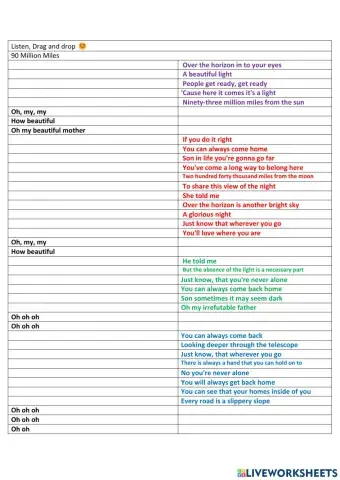 Listen, Drag and drop 😊
90 Million Miles
Over the horizon in to your eyes
A beautiful light
People get ready, get ready
'Cause here it comes it's a light
Ninety-three million miles from the sun
Oh, my, my
How beautiful
Oh my beautiful mother
If you do it right
You can always come home
Son in life you're gonna go far
You've come a long way to belong here
Two hundred forty thousand miles from the moon
To share this view of the night
She told me
Over the horizon is another bright sky
A glorious night
Just know that wherever you go
You'll love where you are
Oh, my, my
How beautiful
He told me
But the absence of the light is a necessary part
Just know, that you're never alone
You can always come back home
Son sometimes it may seem dark
Oh my irrefutable father
Oh oh oh
Oh oh oh
You can always come back
Looking deeper through the telescope
Just know, that wherever you go
There is always a hand that you can hold on to
No you're never alone
You will always get back home
You can see that your homes inside of you
Every road is a slippery slope
Oh oh oh
Oh oh oh
Oh oh
LIVEWORKSHEETS